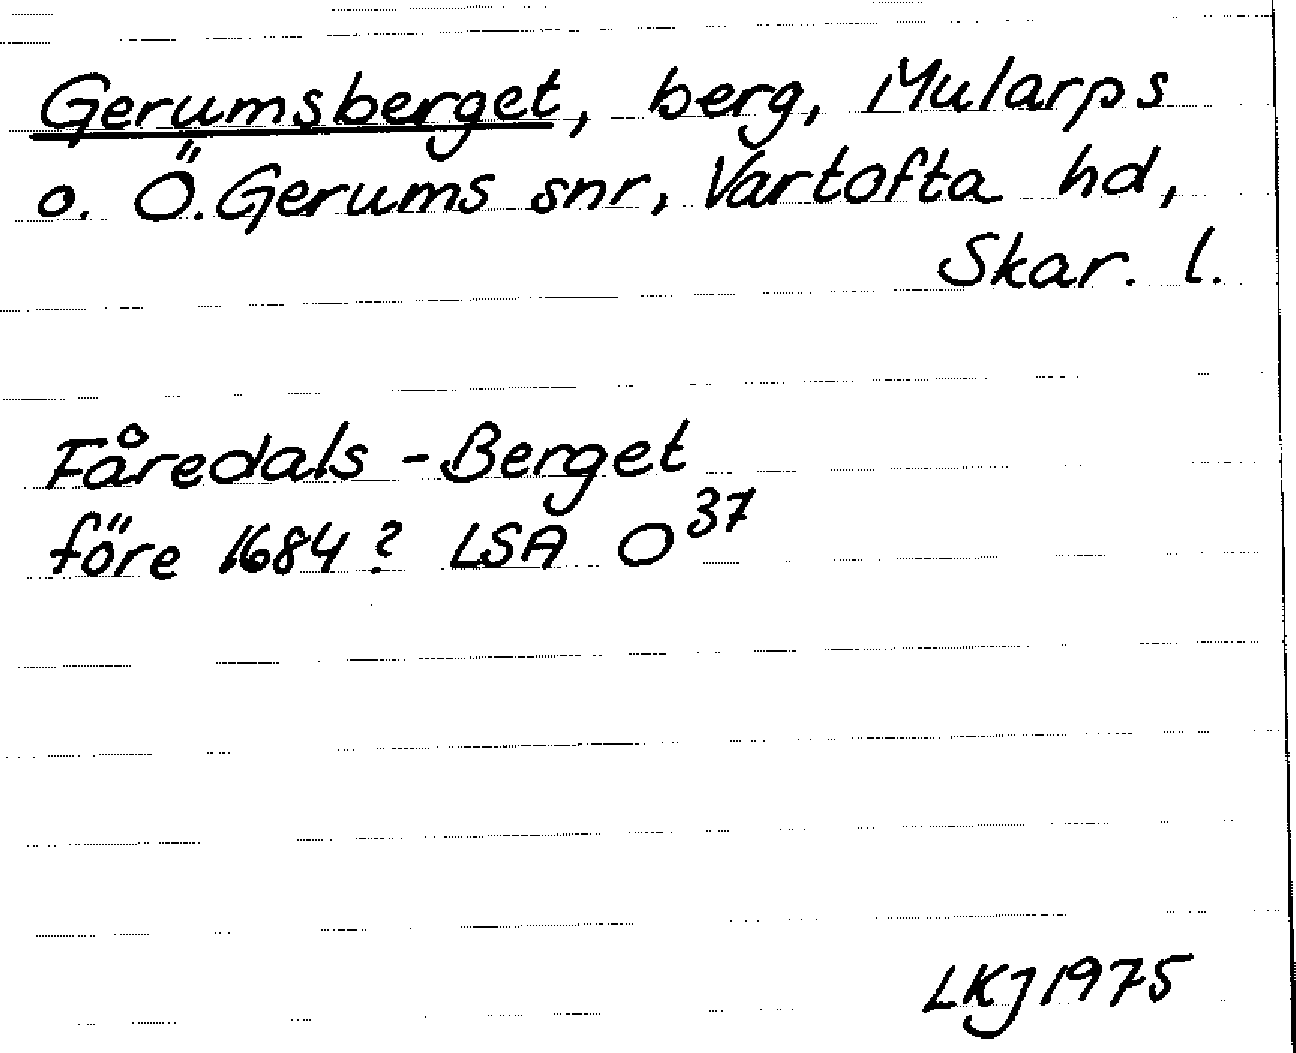 Gerumsberget, berg, Mularps
o. Ö. Gerums snr, Vartofta hd,
Skar. l.
Fåredals-Berget
före 1684? LSA O 37
LKJ 1975